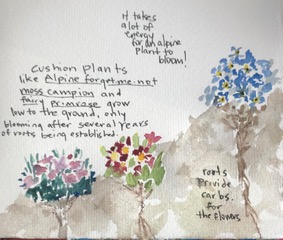 It takes
a lot of
energy
for an alpine
plant to
bloom!
Cushion plants
like Alpine forget-me-not
moss campion and
fairy primrose grow
low to the ground, only
blooming after several years
of roots being established.
roots
provide
carbs.
for
the flowers